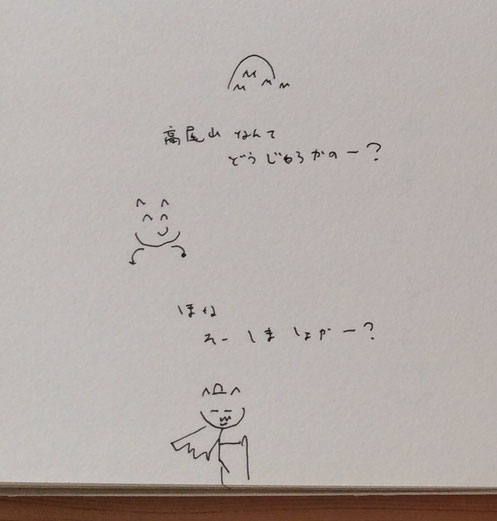 高尾山 なんて
どうじゃろかのー?
ほな
そーしましょかー?